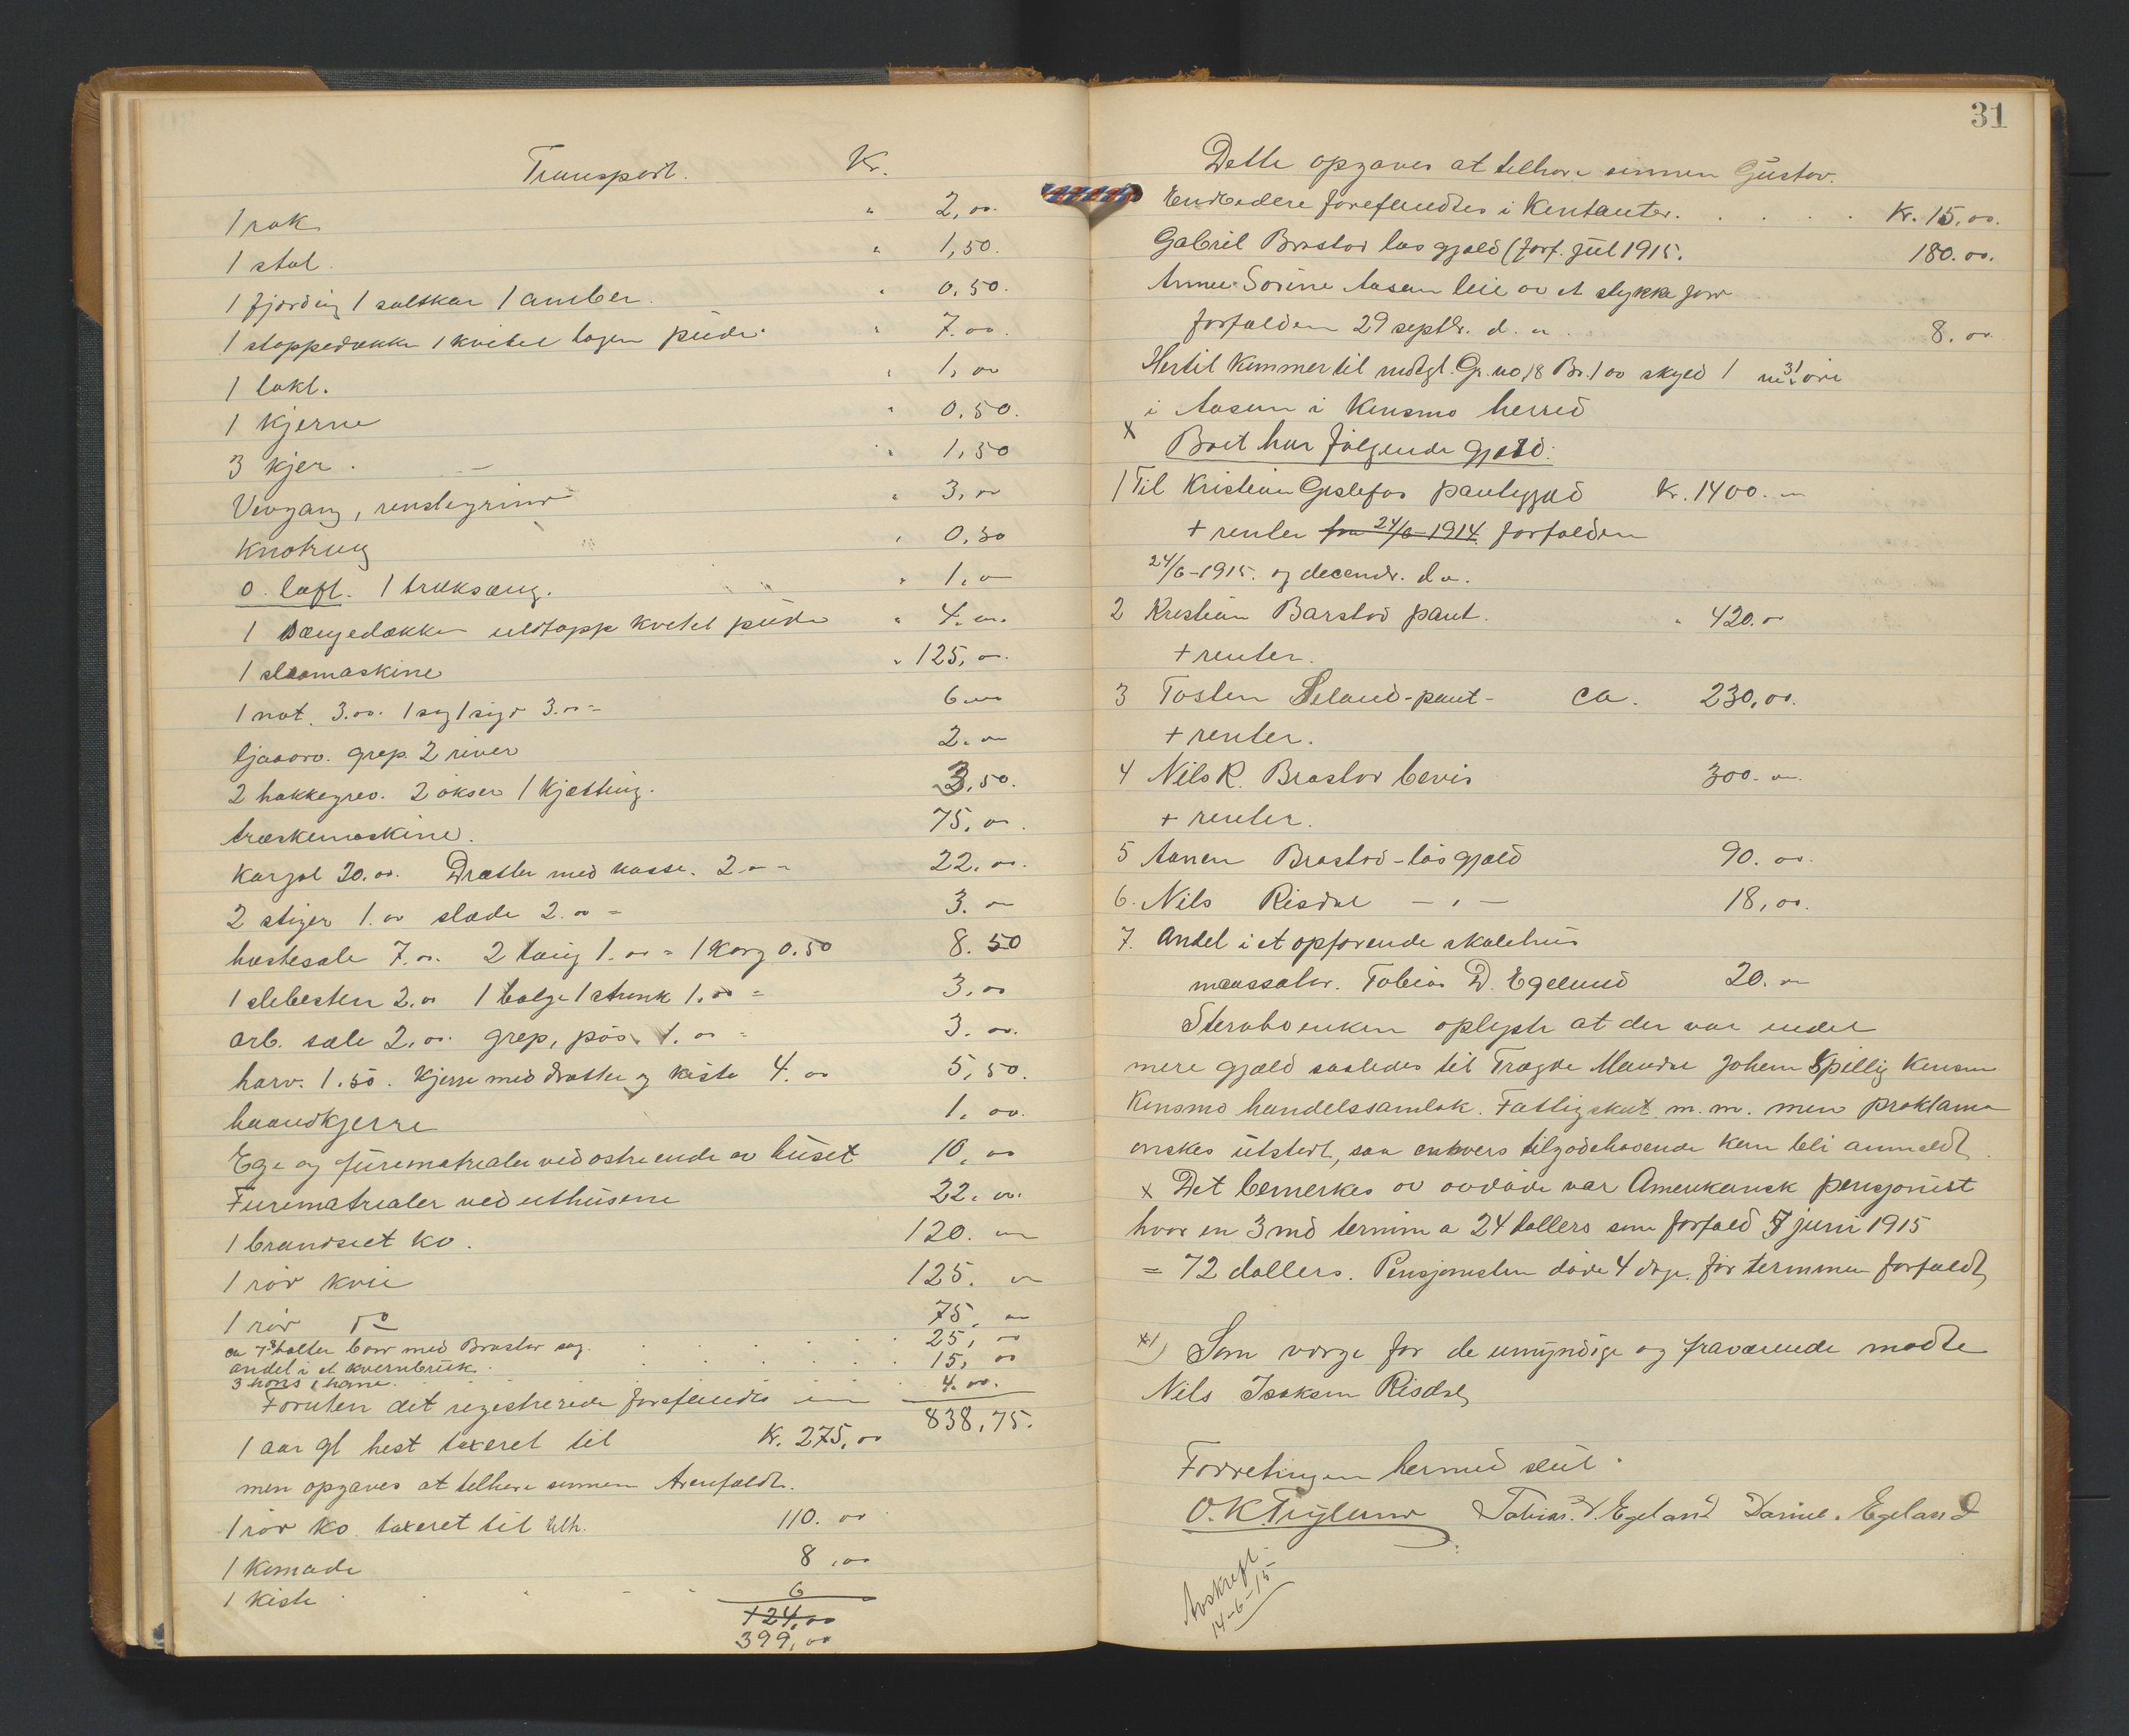 Transport. Kr.
1 rok " 2,00.
1 stol. " 1,50.
1 fjording 1 saltkar 1 amber. " 0,50.
1 stoppedække 1 kvitel lagen püde. " 7.00.
1 lokt. " 1,00
1 kjerne " 0,50.
3 kjer. " 1,50
Vevgang, renstegrind " 3,00
Knotrug " 0,30
o. loft. 1 træksæng. " 1,00
1 sængedækken uldtæpp kvitel püde " 4.00.
1 slaamaskine " 125,00.
1 not. 3.00. 1 sag 1 sigd 3.00 = 6.00
ljaaorv. grep. 2 river 2.00
2 hakkegrev. 2 økser 1 kjetting. 3,50.
træskemaskine. 75,00.
Karjol 20.00. Drætter med kasse. 2.00 = 22.00.
2 stiger 1.00 slæde 2.00 = 3.00
hestesale 7.00. 2 taug 1.00 = 1 Korg 0.50 8.50
1 slibesten 2.00 1 balge 1 strunk 1.00 = 3.00
arb. sæle 2.00. grep, pøs. 1.00 = 3.00.
harv. 1.50. Kjerre med drætter og kiste 4.00 5,50.
haandkjerre 1.00.
Ege og fürematrialer ved østre ende av hüset 10,00
Furematrialer ved uthüsene 22.00.
1 brandset ko. 120.00
1 rød kvie 125.00
1 rød do 75.00
ca 7 tolter bord med Brastad sag. 25,00
andel i et kvernbrük. 15,00
3 høns 1 hane. 4.00.
Foruten det registrerede forefandtes en 838,75.
1 aar gl hest taxeret til Kr. 275,00
men opgaves at tilhøre sønnen Arenfeldt.
1 rød ko taxeret til tilh. 110.00
1 komode 8,00
1 kiste 6
124,00
399,00
31
Dette opgaves at tilhøre sønnen Güstav.
Endvidere forefandtes i Kontanter. Kr. 15,00.
Gabriel Brastad løs gjæld (forf. jül 1915. 180.00.
Anne Sorine Aasen leie av et stykke jord
forfalden 29 septbr. d. a. 8.00
Hertil kommer til mdtgl. Gr. no 18 Br. 1 av skyld 1 m 31 øre
i Aasen i Konsmo herred
x Boet har følgende gjæld:
1 Til Kristian Gislefos pantegjæld Kr. 1400.00
+ renter fra 24/6-1914. forfalden
24/6-1915. og decembr. d a.
2 Kristian Barstad pant. " 420.00
+ renter.
3 Tosten Seland-pant- ca. 230,00.
+ renter.
4 Nils R. Brastad bevis 300.00.
+ renter.
5 Aanen Brastad-løsgjæld 90.00.
6. Nils Risdal - " - 18,00.
7. Andel i et opførende skolehüs
Tobias D. Egeland 20.00
Stervboenken oplyste at der var endel
mere gjæld saaledes til Trægde Mandal Johan Spillig Konsmo
Konsmo handelssamlak. Fattigskat m.m. men proklama
ønskes ütstedt, saa enhvers tilgodehavende kan bli anmeldt.
x Det bemerkes av avdøde var Amerikansk pensjonist
hvor en 3 md termin a 24 dollers som forfald 7 juni 1915
= 72 dollers. Pensjonisten døde 4 dage før terminen forfaldt,
x1) Som verge for de umyndige og fraværende mødte
Nils Isaksen Risdal,
Forretningen hermed slut.
O. K. Tryland Tobias. D. Egeland Daniel. Egeland
Avskreft.
14-6-15